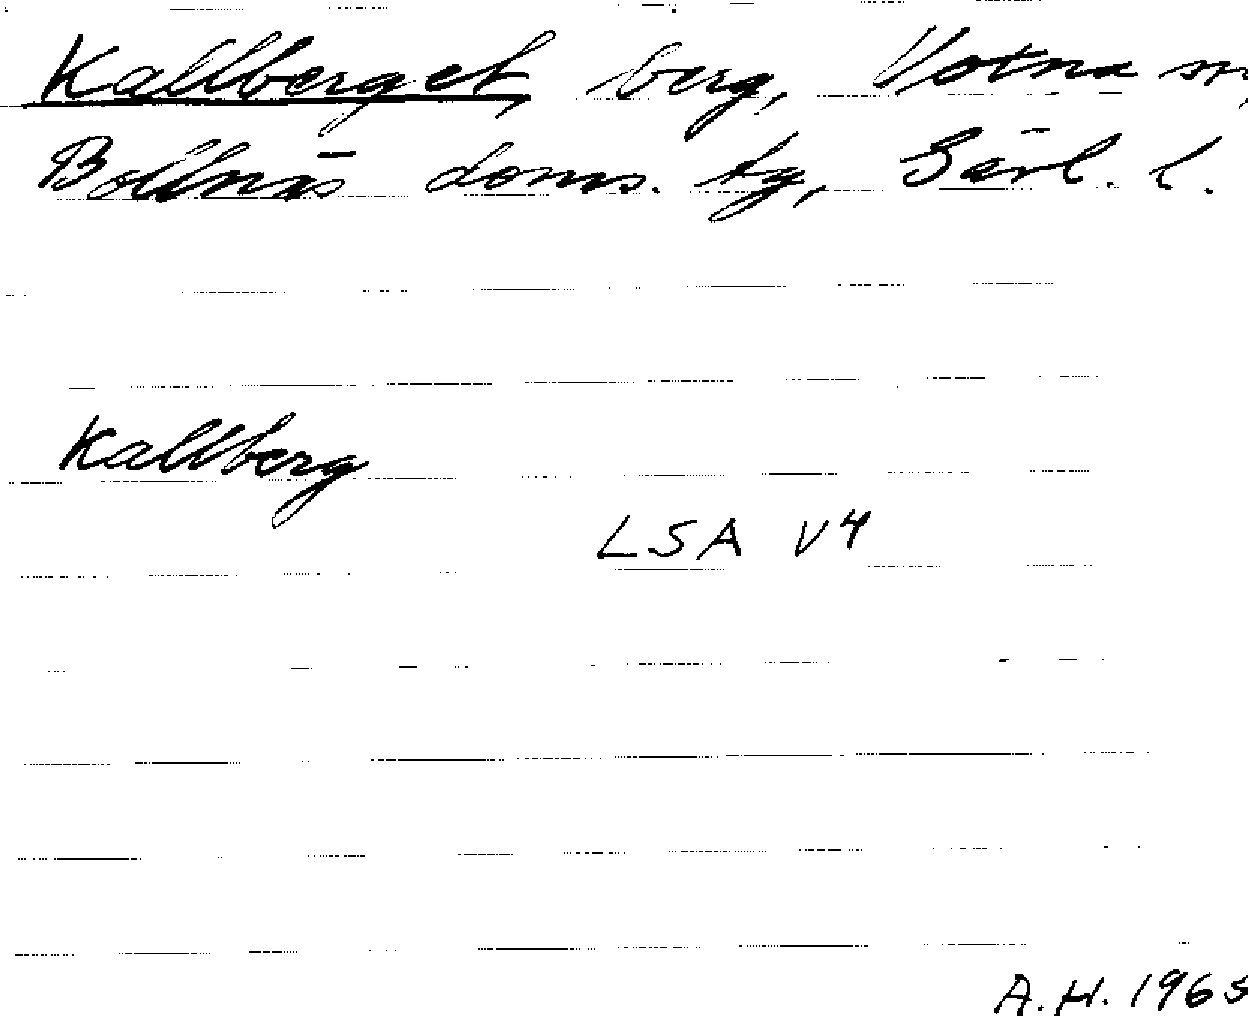 Kallberget, berg, Votna sn,
Bollnäs doms. tg, Gävl. l.
Kallberg
LSA V4
A.H. 1965